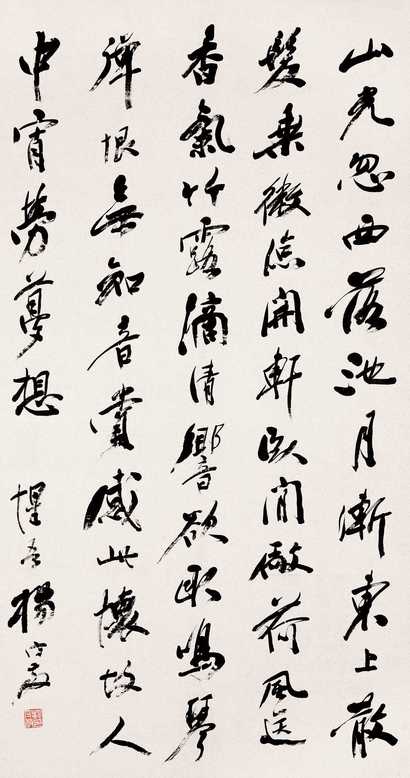 山光忽西落池月漸東上散
髮乘微涼開軒臥閒敞荷風送
香氣竹露滴清響欲取鳴琴
彈恨無知音賞感此懷故人
中宵勞夢想 惺吾楊守敬